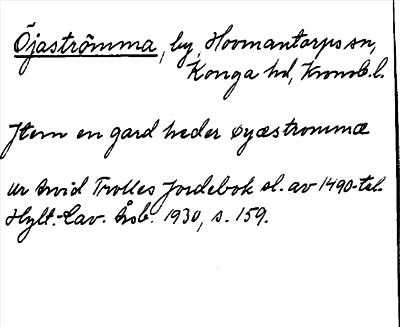 Öjaströmma, by, Hovmantorps sn,
Konga hd, Kronob. l.
Item en gard heder øyæstrommæ
ur Arvid Trolles Jordebok sl. av 1490-tal.
Hylt.-Cav. Årsb. 1930, s. 159.